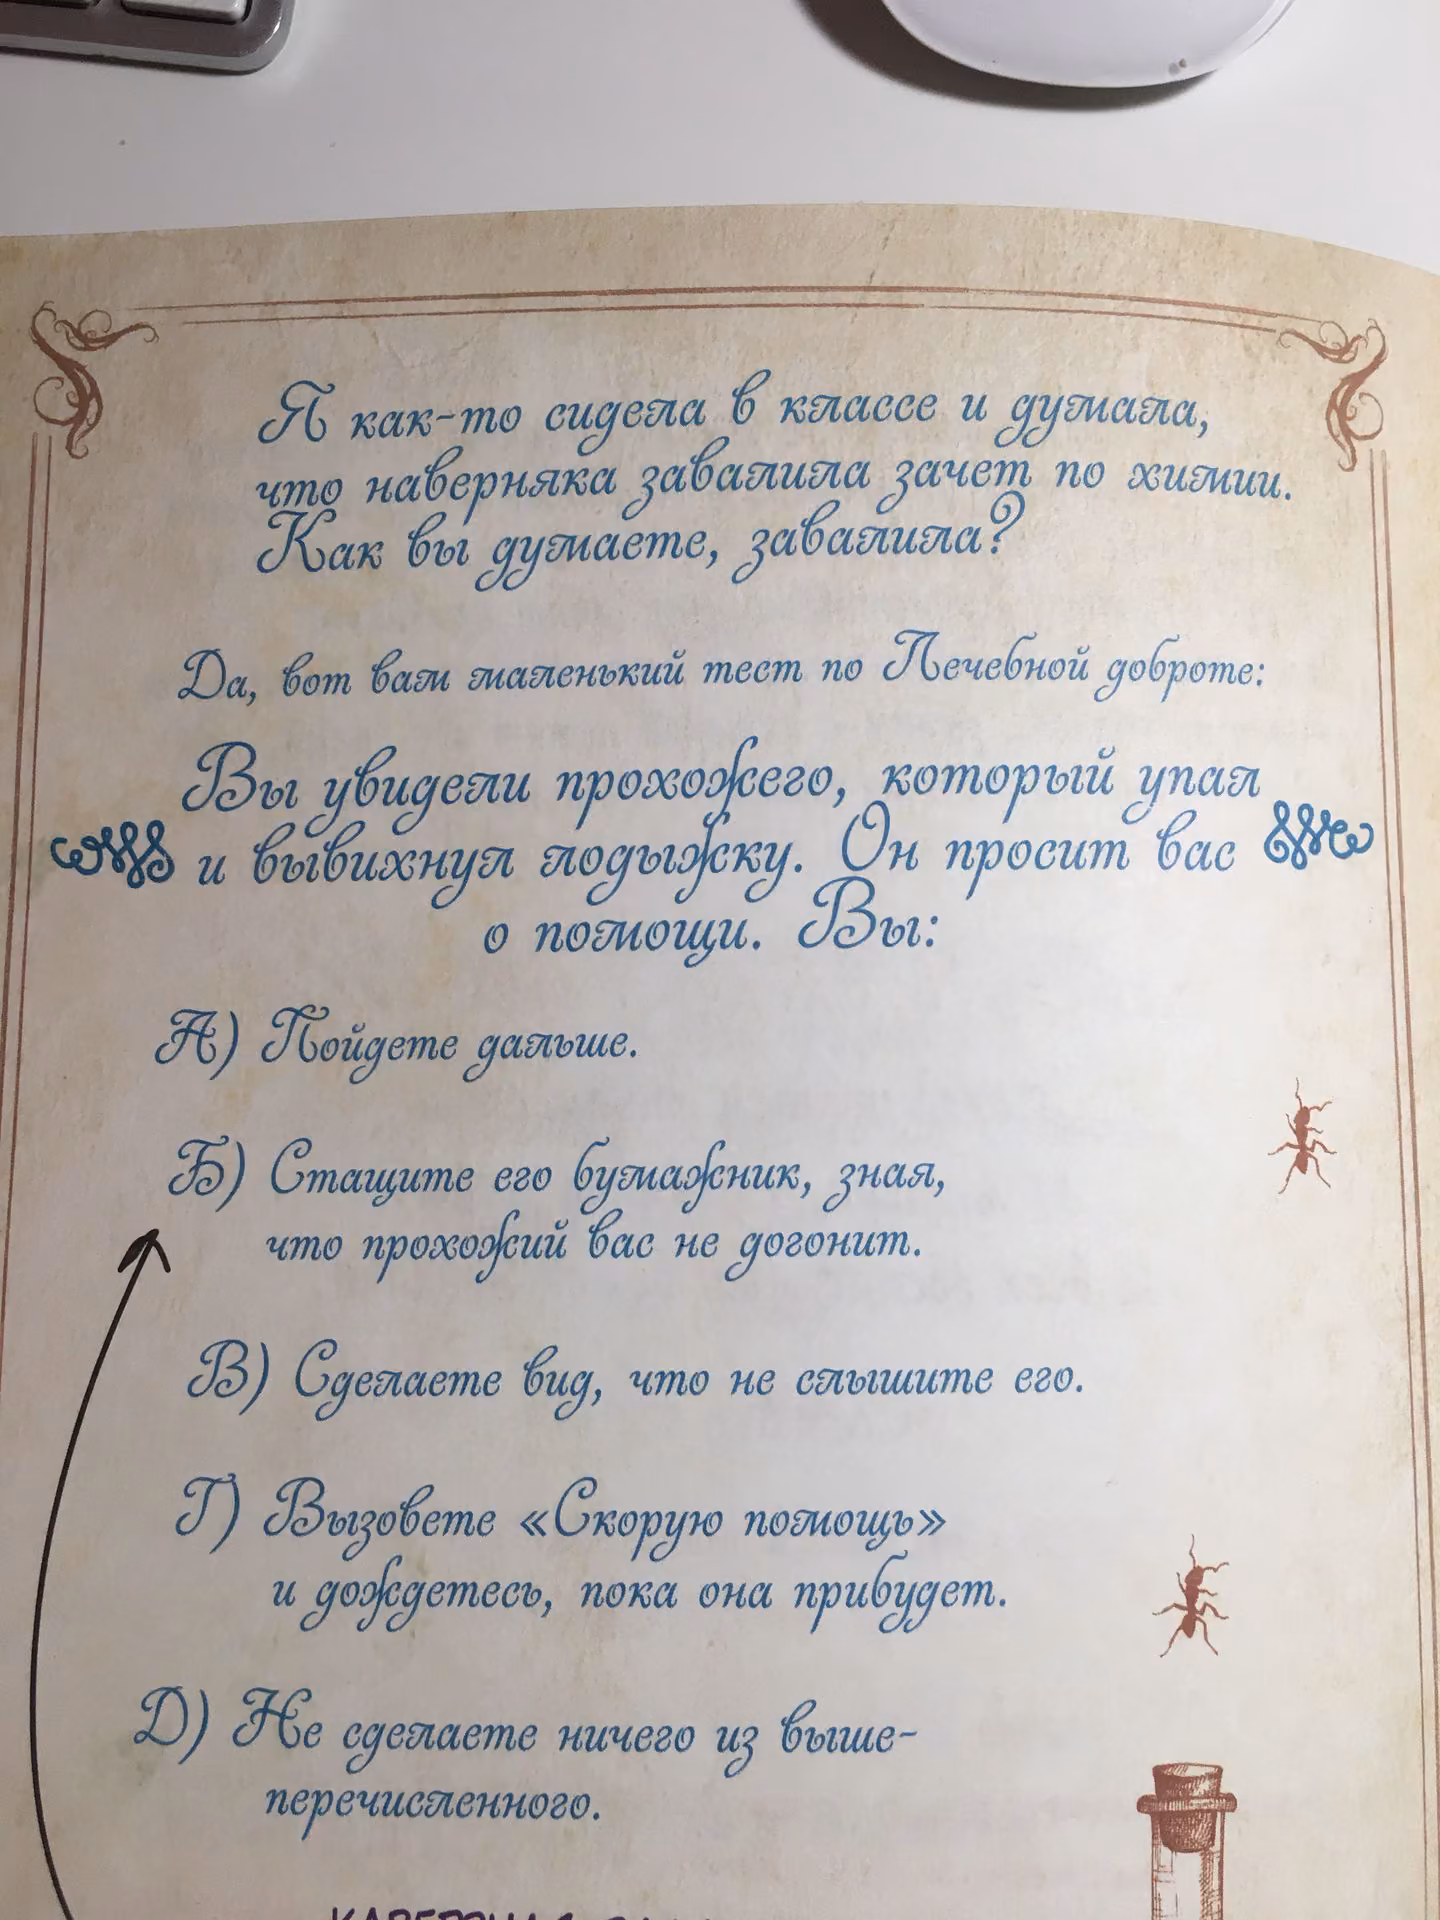 Я как-то сидела в классе и думала,
что наверняка завалила зачет по химии.
Как вы думаете, завалила?
Да, вот вам маленький тест по Лечебной доброте:
Вы увидели прохожего, который упал
и вывихнул лодыжку. Он просит вас
о помощи. Вы:
А) Пойдете дальше.
Б) Стащите его бумажник, зная,
что прохожий вас не догонит.
В) Сделаете вид, что не слышите его.
Г) Вызовете «Скорую помощь»
и дождетесь, пока она прибудет.
Д) Не сделаете ничего из выше-
перечисленного.